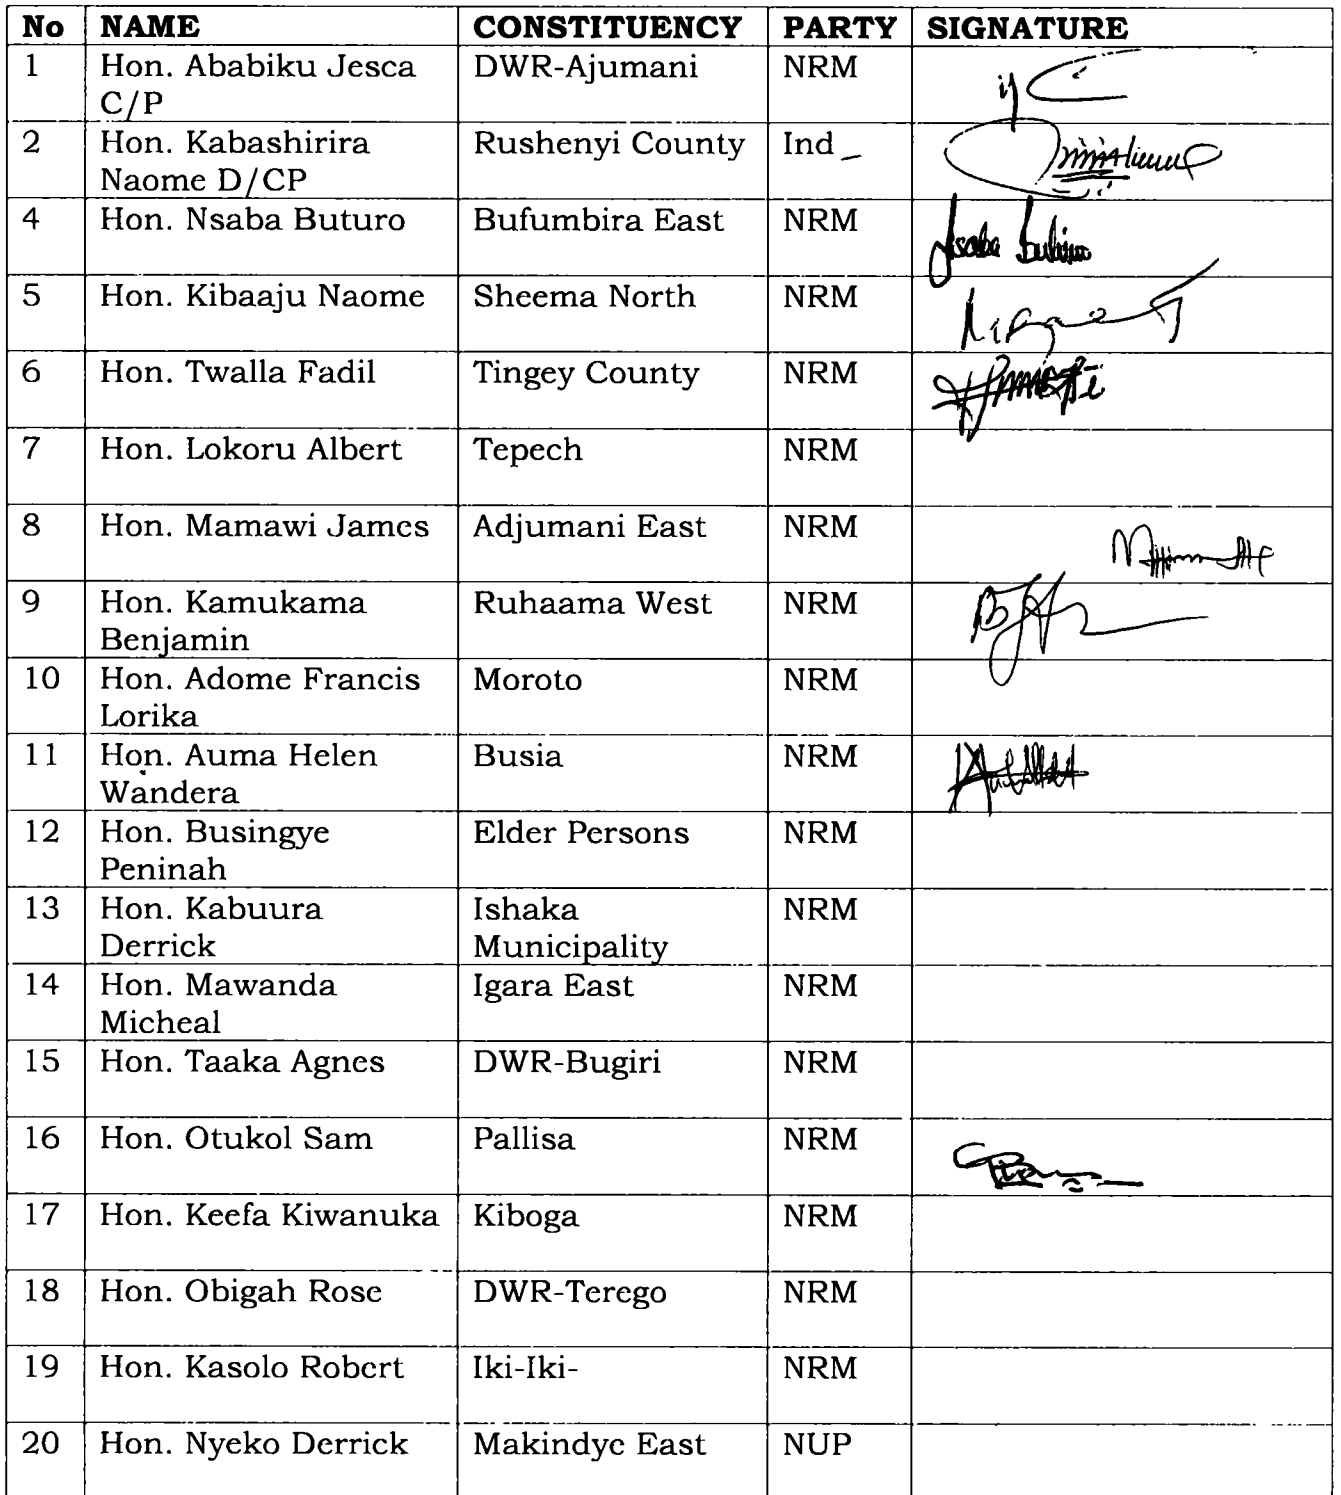 No NAME CONSTITUENCY PARTY SIGNATURE
1 Hon. Ababiku Jesca DWR-Ajumani NRM
C/P
2 Hon. Kabashirira Rushenyi County Ind
Naome D/CP
4 Hon. Nsaba Buturo Bufumbira East NRM
5 Hon. Kibaaju Naome Sheema North NRM
6 Hon. Twalla Fadil Tingey County NRM
7 Hon. Lokoru Albert Tepech NRM
8 Hon. Mamawi James Adjumani East NRM
9 Hon. Kamukama Ruhaama West NRM
Benjamin
10 Hon. Adome Francis Moroto NRM
Lorika
11 Hon. Auma Helen Busia NRM
Wandera
12 Hon. Busingye Elder Persons NRM
Peninah
13 Hon. Kabuura Ishaka NRM
Derrick Municipality
14 Hon. Mawanda Igara East NRM
Micheal
15 Hon. Taaka Agnes DWR-Bugiri NRM
16 Hon. Otukol Sam Pallisa NRM
17 Hon. Keefa Kiwanuka Kiboga NRM
18 Hon. Obigah Rose DWR-Terego NRM
19 Hon. Kasolo Robert Iki-Iki- NRM
20 Hon. Nyeko Derrick Makindye East NUP